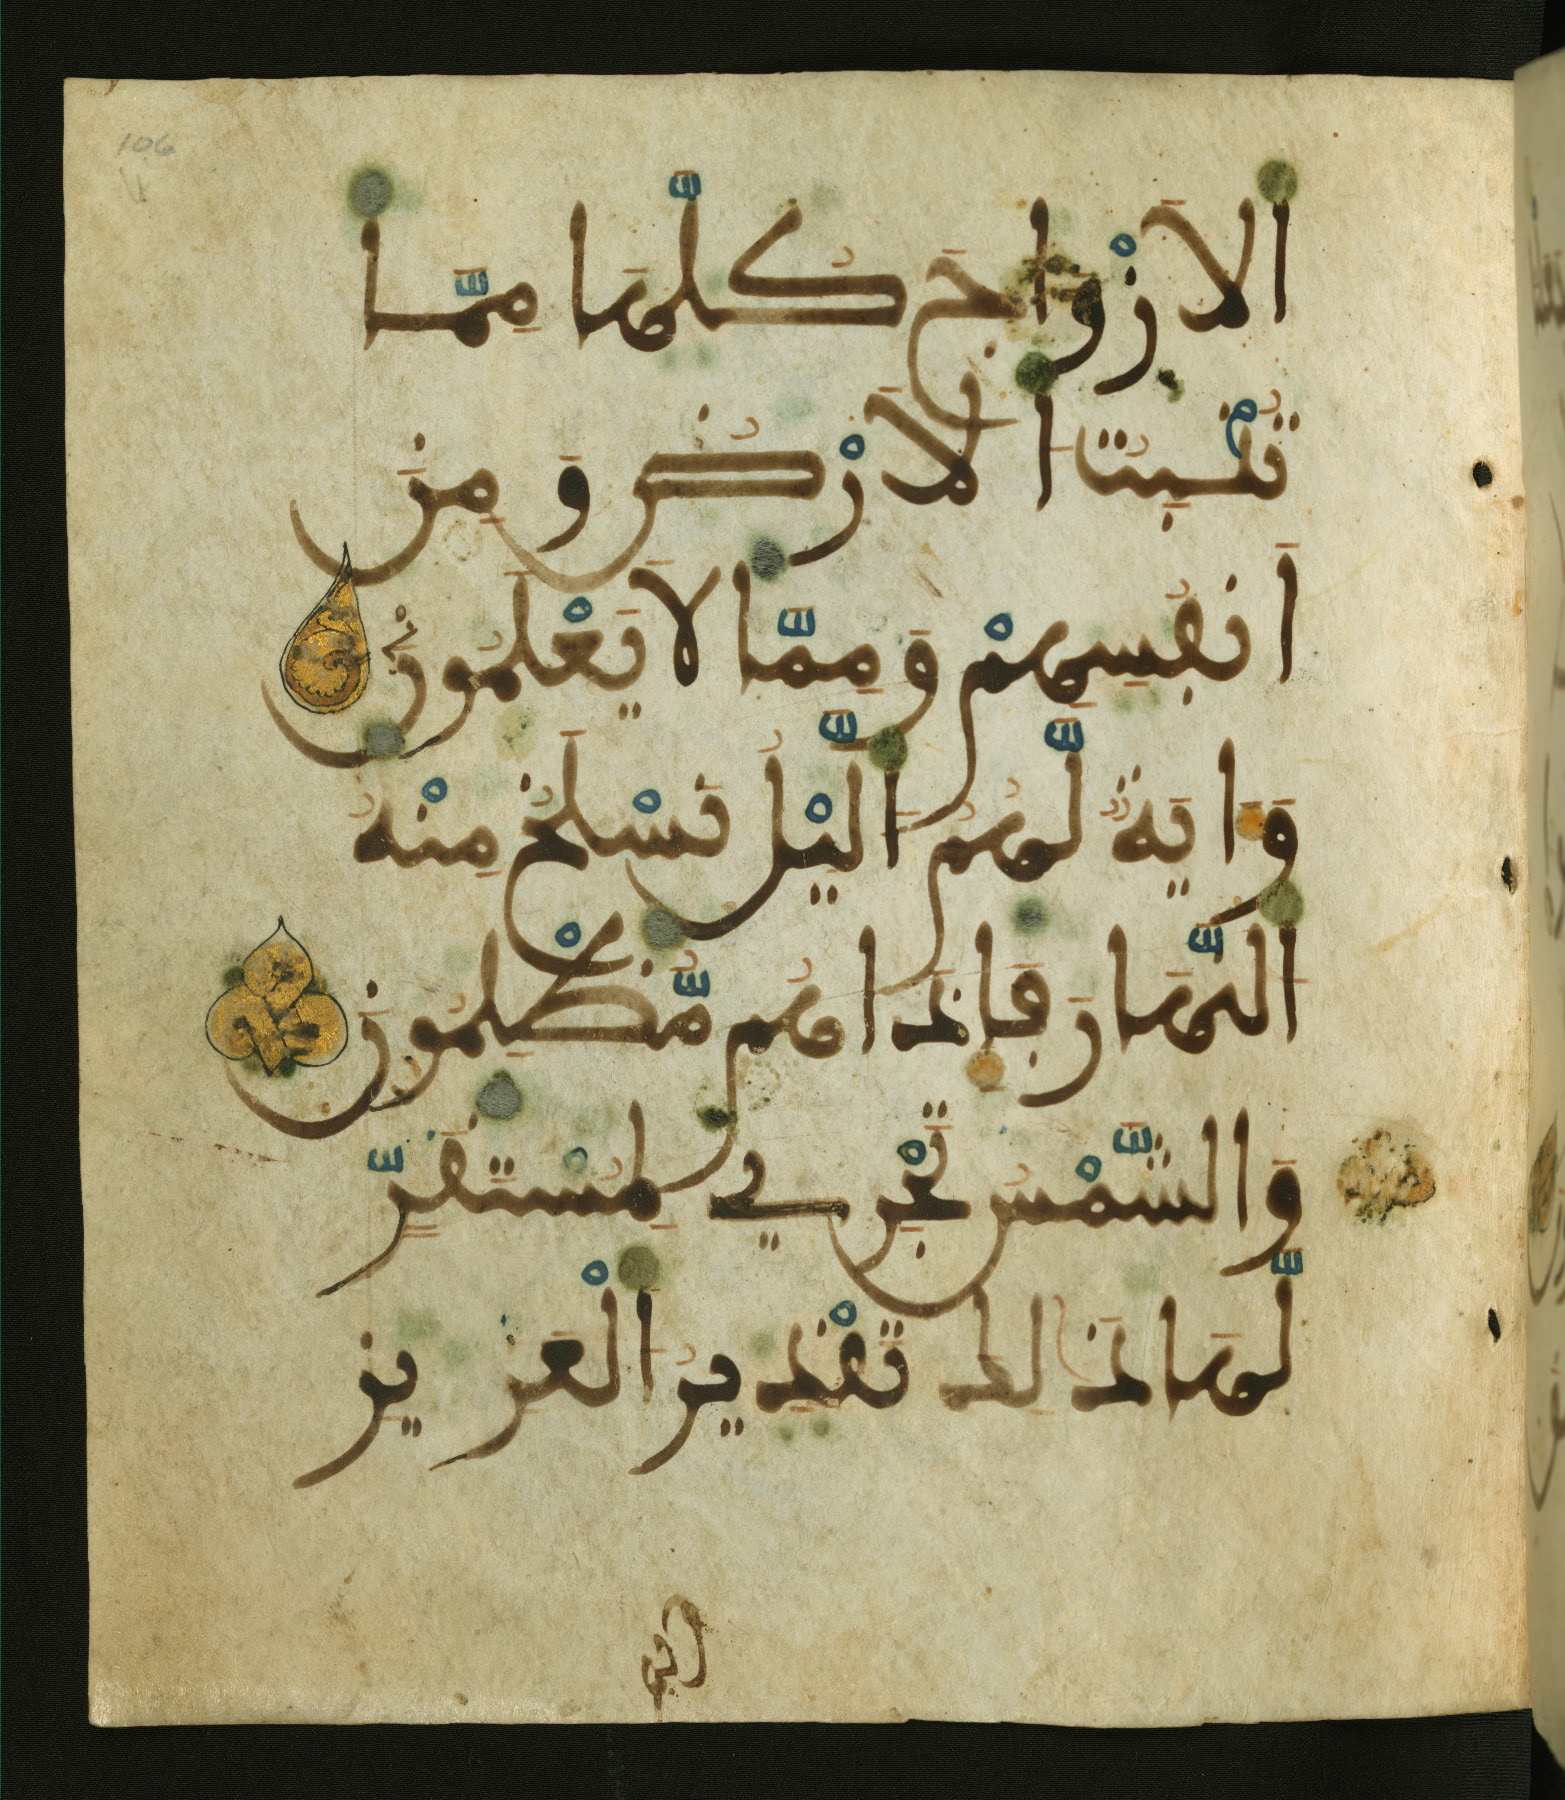 106
الازْوَاجَ كُلَّهَا مِمَّا
تُنْبِتُ ا لَارْضُ وَ مِنَ
اَ نفُسِهِمْ وَ مِمَّا لَا يَعْلَمُونَ
وَ ايَةٌ لَّهُمُ اليْلُ نَسْلَخُ مِنْهُ
النَّهَارَ فَإِذَا هُم مُّظْلِمُونَ
وَالشَّمْسُ تَجْرِے لِمُسْتَقَرٍّ
لَّهَا ذَالِكَ تَقْدِيرُ الْعَزِيزِ